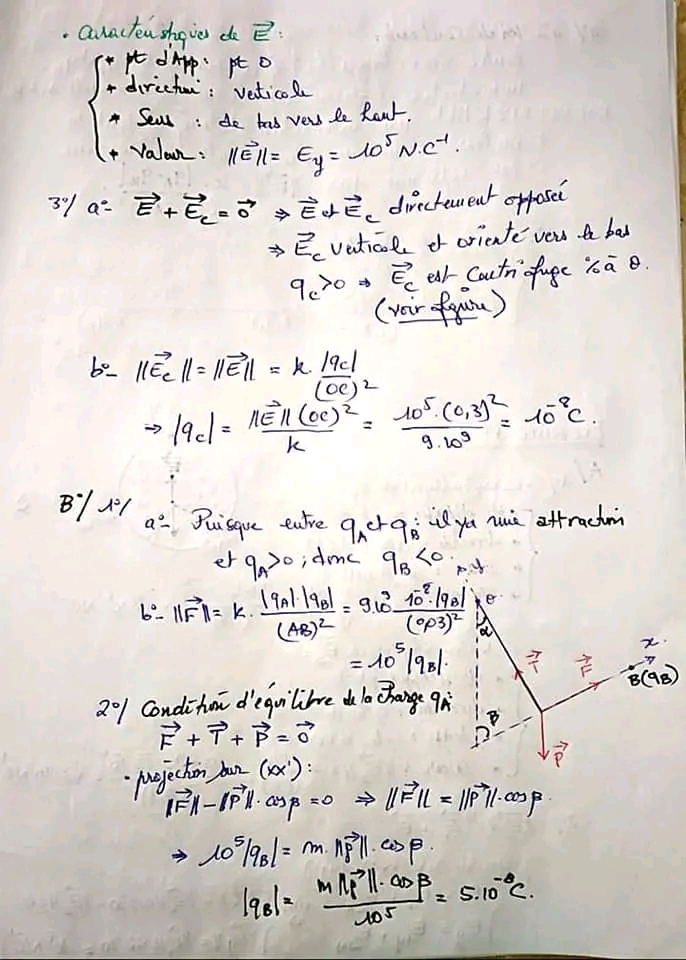 • Caractéristiques de E⃗ :
* pt d'App : pt O
+ direction : verticale
* Sens : de bas vers le haut.
+ Valeur : ||E⃗|| = Ey = 10⁵ N.C⁻¹.
3°/ a°- E⃗ + E⃗c = 0⃗ ⇒ E⃗ et E⃗c directement opposé
⇒ E⃗c verticale et orienté vers le bas
qc > 0 ⇒ E⃗c est Centrifuge % à O.
(voir figure)
b°- ||E⃗c|| = ||E⃗|| = k. |qc| / (OC)²
⇒ |qc| = ||E⃗|| (OC)² / k = 10⁵. (0,3)² / 9.10⁹ = 10⁻⁸ C.
B°/ 1°/ a°- Puisque entre qA et qB : il ya une attraction
et qA > 0 ; donc qB < 0.
b°- ||F⃗|| = k. |qA|.|qB| / (AB)² = 9.10⁹ 10⁻⁸.|qB| / (0,03)²
= 10⁵ |qB|.
α
T⃗
F⃗
x
B(qB)
β
P⃗
2°/ Condition d'équilibre de la charge qA :
F⃗ + T⃗ + P⃗ = 0⃗
• projection sur (xx') :
||F⃗|| - ||P⃗||. cosβ = 0 ⇒ ||F⃗|| = ||P⃗||. cosβ.
⇒ 10⁵ |qB| = m. ||p⃗||. cosβ.
|qB| = m ||p⃗||. cosβ / 10⁵ = 5.10⁻⁸ C.